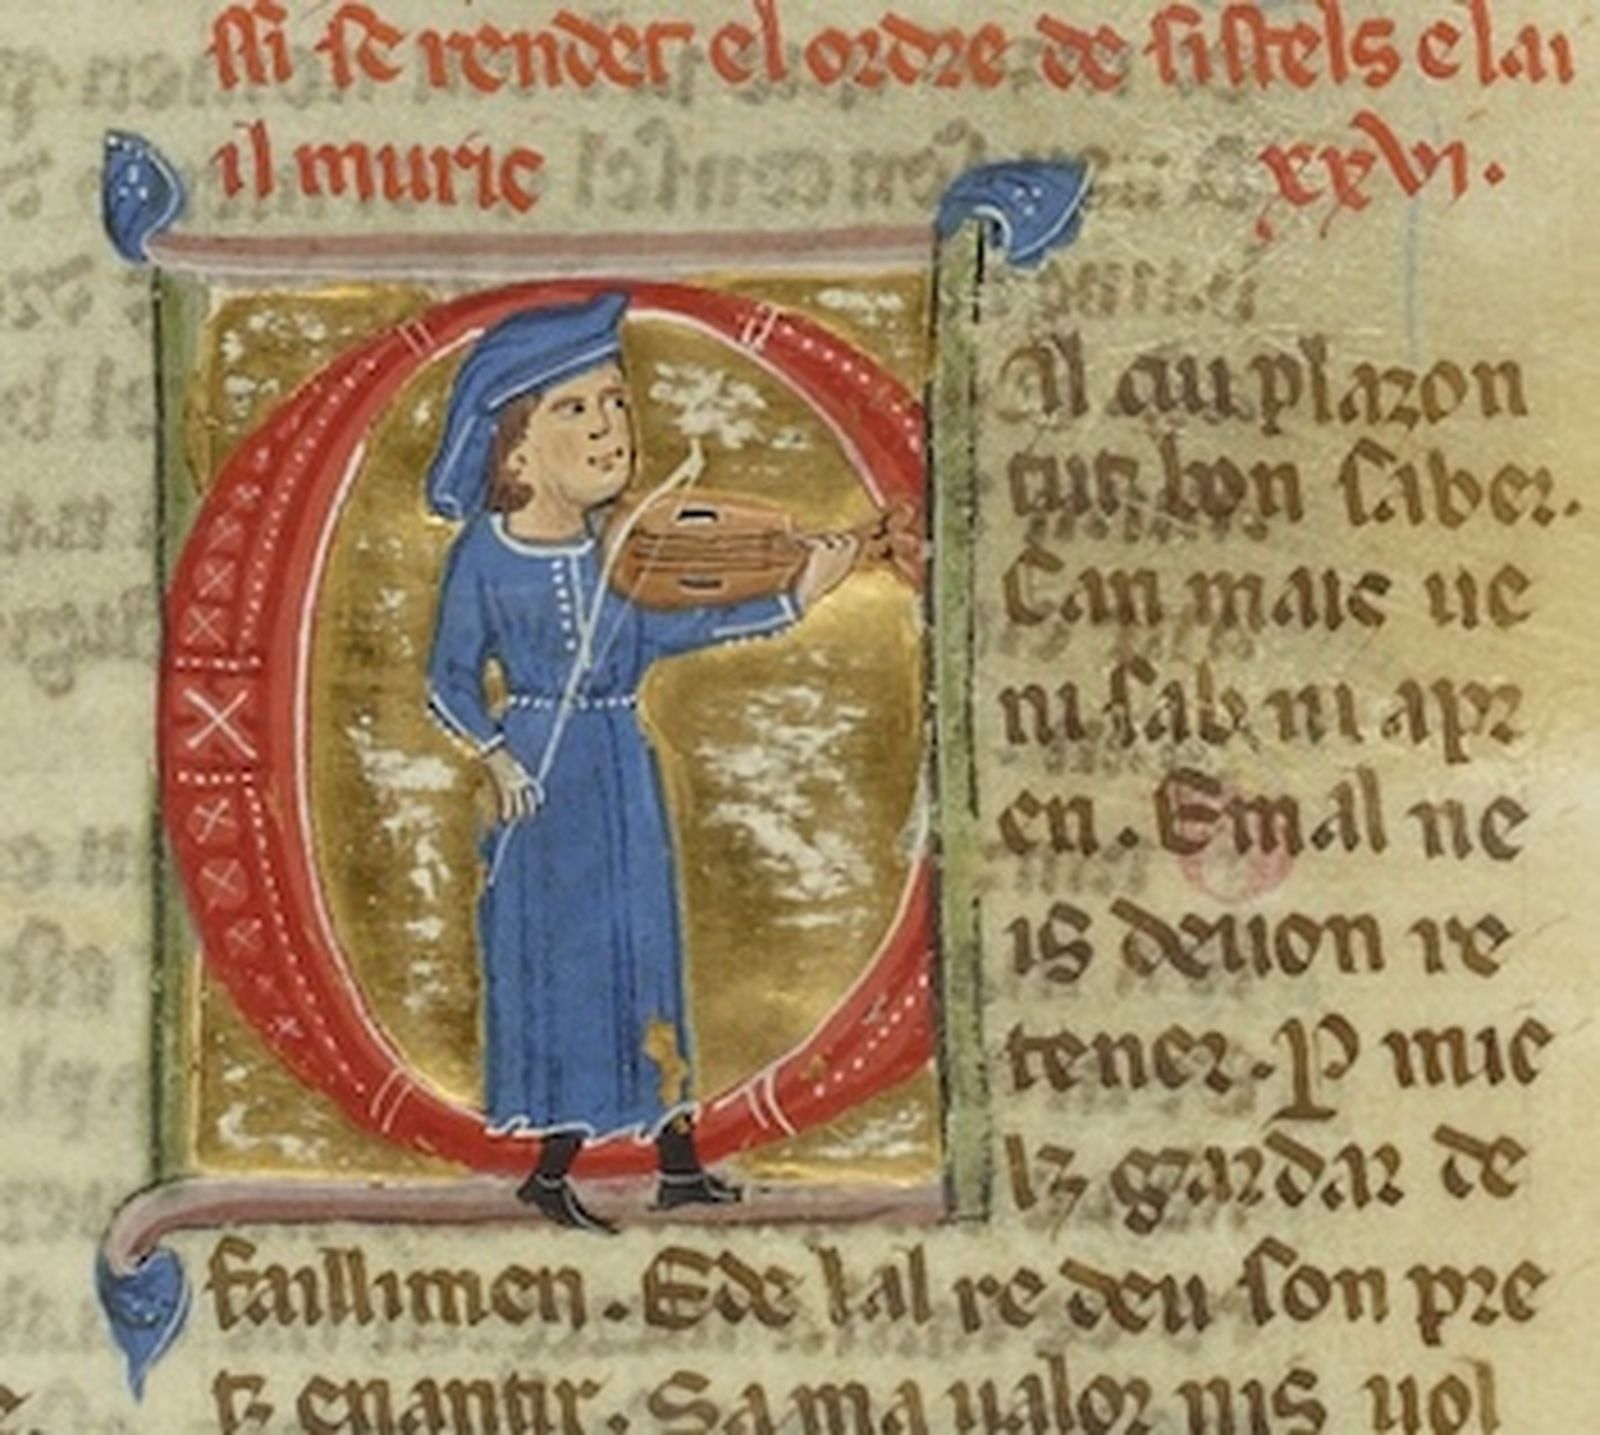 ssi se render el ordre de sistels e lai
il muric
xxvi.
Al qui plazon
tut bon saber.
Can mais ue
ni sab ni apr
en. E mal ne
is deuon re
tener. P mie
lz gardar de
faillimen. E de lal re deu son pre
tz enantir. Sa ma ualor nis uol